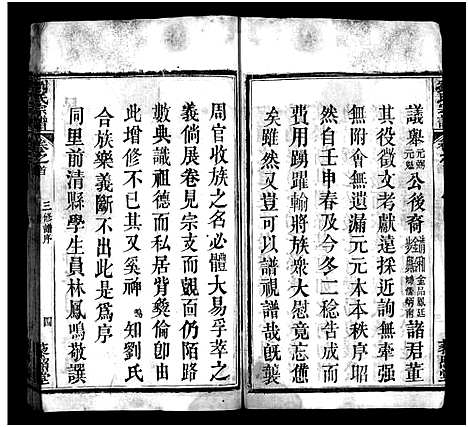 議舉公後裔諸君董
其役徵文考獻遠採近詢無悉
無附會無遺漏元元本本秩序昭
然自壬申春及今冬二稔告成而
費用踴躍輸將族眾大慰竟忘憊
矣雖然又豈可以譜視譜哉甚襲
周官收族之名必體大易乎萃之
義倘展卷見宗支而覿面仍陌路
數典識祖德而私居背彜倫卽由
此增修不已其又奚裨鳴知劉氏
合族樂義斷不出此是爲序
同里前清縣學生員林鳳鳴敬譔
三修譜序
四